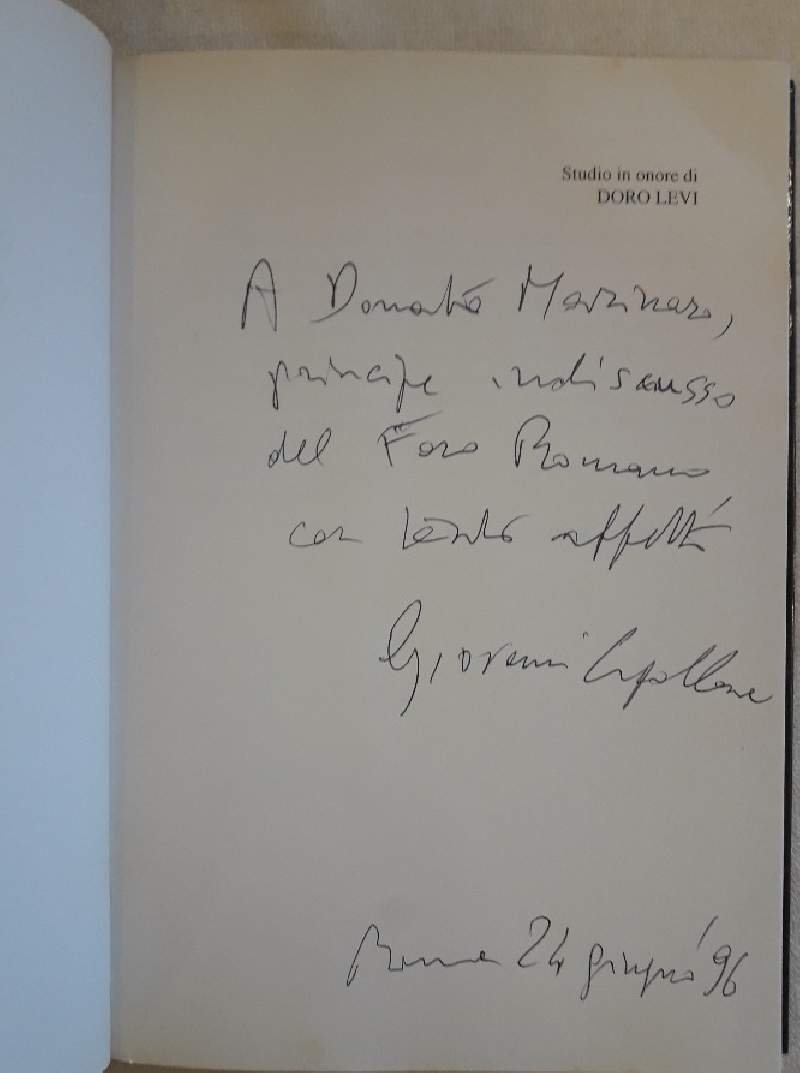 Studio in onore di
DORO LEVI
A Donato Marzinaro,
principe indiscusso
del Foro Romano
con tanto affetto
Giovanni
Roma 24 giugno '96